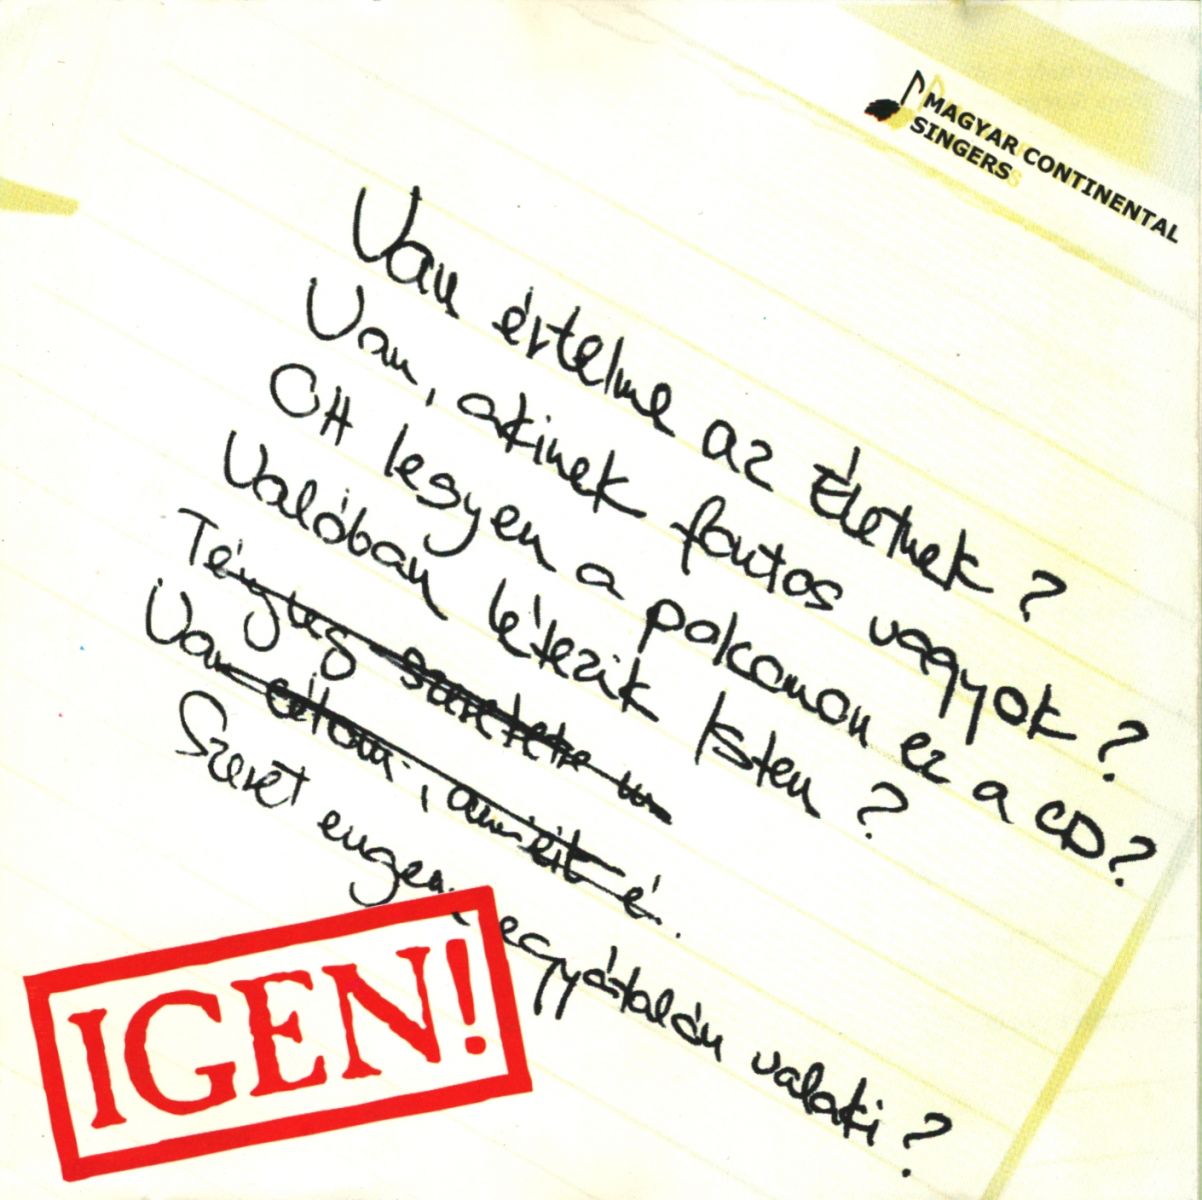 MAGYAR CONTINENTAL
SINGERS
Van értelme az Életnek?
Van, akinek fontos vagyok?
Ott legyen a polcomon ez a CD?
Valóban létezik Isten?
Tényleg szeretete
Van célom, amiért é
Szeret engem egyáltalán valaki?
IGEN!